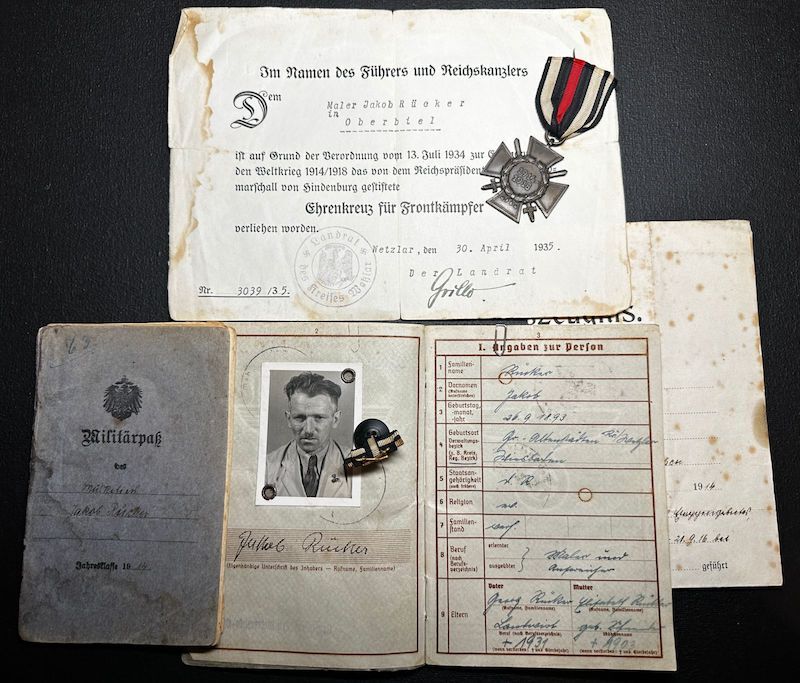 Im Namen des Führers und Reichskanzlers
Dem
Maler Jakob Rücker
in
Oberbiel
ist auf Grund der Verordnung vom 13. Juli 1934 zur
den Weltkrieg 1914/1918 das von dem Reichspräsiden
marschall von Hindenburg gestiftete
Ehrenkreuz für Frontkämpfer
verliehen worden.
Wetzlar, den 30. April 1935.
Der Landrat
Grillo
Nr. 3039 /35.
Landrat
des Kreises Wetzlar
zeugnis.
1916
21.9.16
geführt
Militärpaß
des
Jakob Rücker
Jahresklasse 1914
2
Jakob Rücker
(Eigenhändige Unterschrift des Inhabers — Rufname, Familienname)
3
I. Angaben zur Person
1 Familienname Rücker
2 Vornamen (Rufname unterstreichen) Jakob
3 Geburtstag, -monat, -jahr 26.9.1893
4 Geburtsort Verwaltungsbezirk (z. B. Kreis, Reg. Bezirk) Wetzlar
Wiesbaden
5 Staatsangehörigkeit (auch frühere) d. R.
6 Religion ev.
7 Familienstand verh.
8 Beruf (nach Berufsverzeichnis) erlernter
ausgeübter
Maler und
9 Eltern Vater Mutter
Georg Rücker Elisabeth Rücker
(Rufname, Familienname) (Rufname, Familienname)
Landwirt geb.
Beruf (nach Berufsverzeichnis) Mädchenname
+ 1931 + 1903
(wenn verstorben: † und Sterbejahr) (wenn verstorben: † und Sterbejahr)